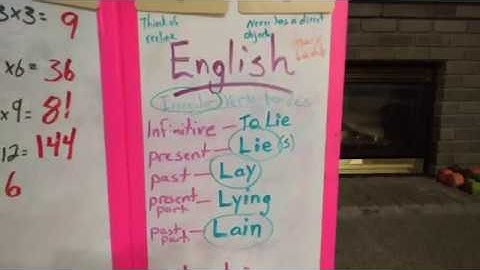 3×3= 9
×6= 36
×9= 81
12= 144
6
Think of
recline
Never has a direct
object
English
Irregular Verb tenses
Infinitive — To Lie
present — Lie (s)
past — Lay
present part. — Lying
past part. — Lain